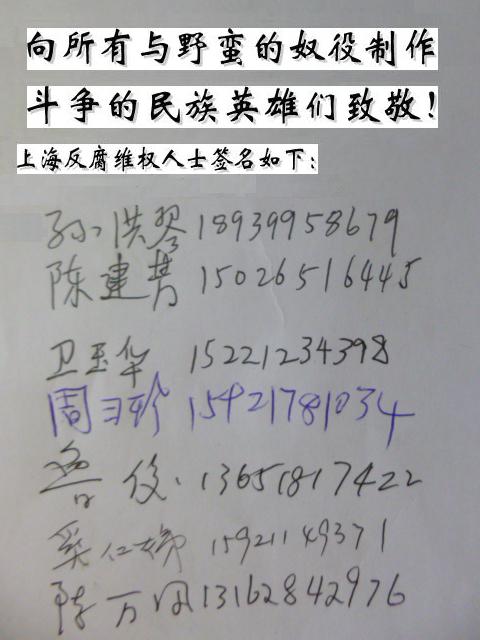 向所有与野蛮的奴役制作
斗争的民族英雄们致敬！
上海反腐维权人士签名如下：
孙洪琴 18939958679
陈建芳 15026516445
卫玉华 15221234398
周 珍 15921781034
鲁俊. 13651817422
奚仁娣 15921149371
陈万 13162842976